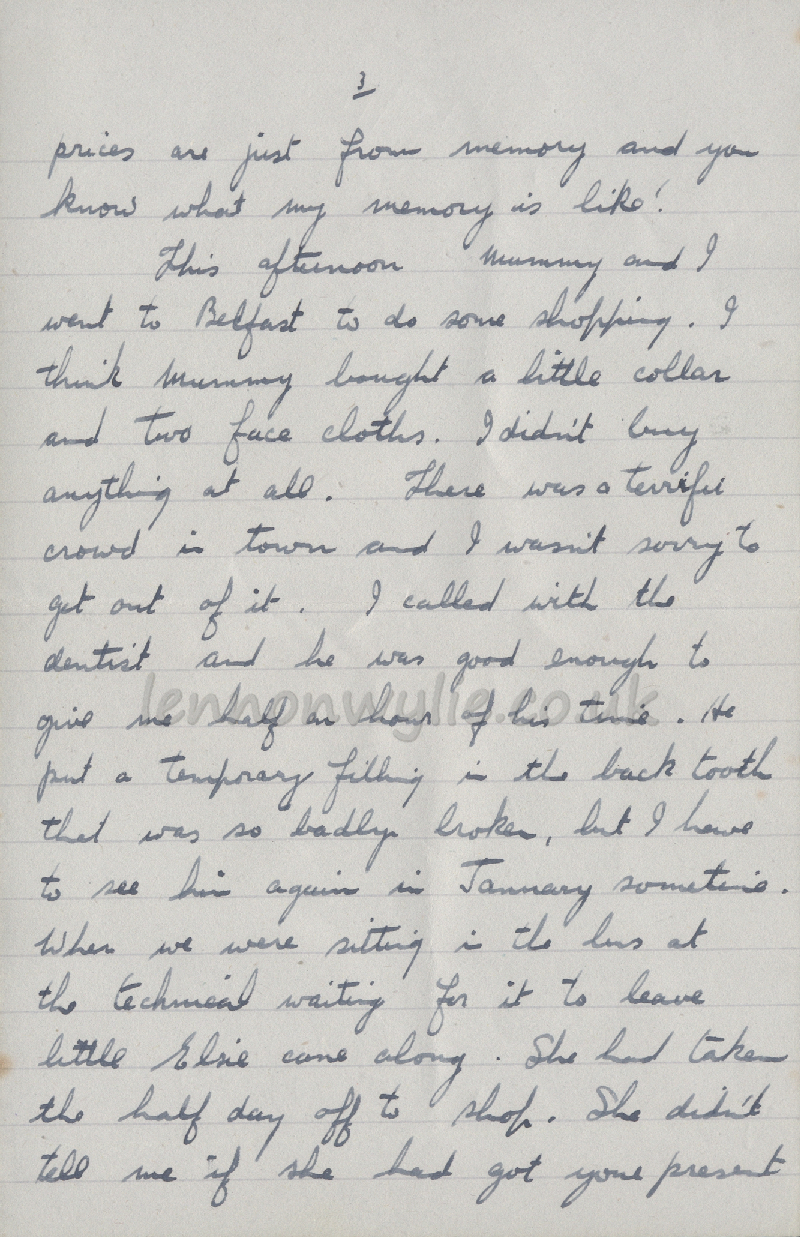 3
prices are just from memory and you
know what my memory is like!
This afternoon Mummy and I
went to Belfast to do some shopping. I
think Mummy bought a little collar
and two face cloths. I didn't buy
anything at all. There was a terrific
crowd in town and I wasn't sorry to
get out of it. I called with the
dentist and he was good enough to
lennonwylie.co.uk
give me half an hour of his time. He
put a temporary filling in the back tooth
that was so badly broken, but I have
to see him again in January sometime.
When we were sitting in the bus at
the technical waiting for it to leave
little Elsie came along. She had taken
the half day off to shop. She didn't
tell me if she had got your present